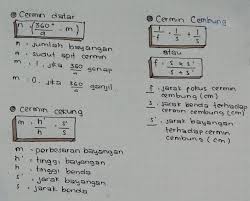 Cermin datar
n = (360° / a - m)
n = jumlah bayangan
a = sudut apit cermin
m = 1, jika 360/a genap
m = 0, jika 360/a ganjil
Cermin cekung
m = h' / h = s' / s
m = perbesaran bayangan
h' = tinggi bayangan
h = tinggi benda
s' = jarak bayangan
s = jarak benda
Cermin Cembung
1/f = 1/s + 1/s'
atau
f = s x s' / s + s'
f = jarak fokus cermin
cembung (cm)
s = jarak benda terhadap
cermin cembung (cm)
s' = jarak bayangan
terhadap cermin
cembung (cm)